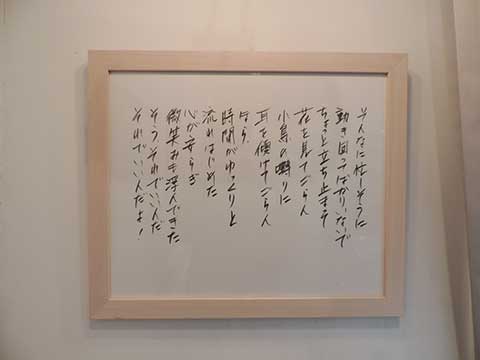 そんなに忙しそうに
動き回ってばかりいないで
ちょっと立ち止まって
花を見てごらん
小鳥の囀りに
耳を傾けてごらん
ほら
時間がゆっくりと
流れはじめた
心が安らぎ
微笑みも浮んできた
そうそれでいいんだ
それでいいんだよ!